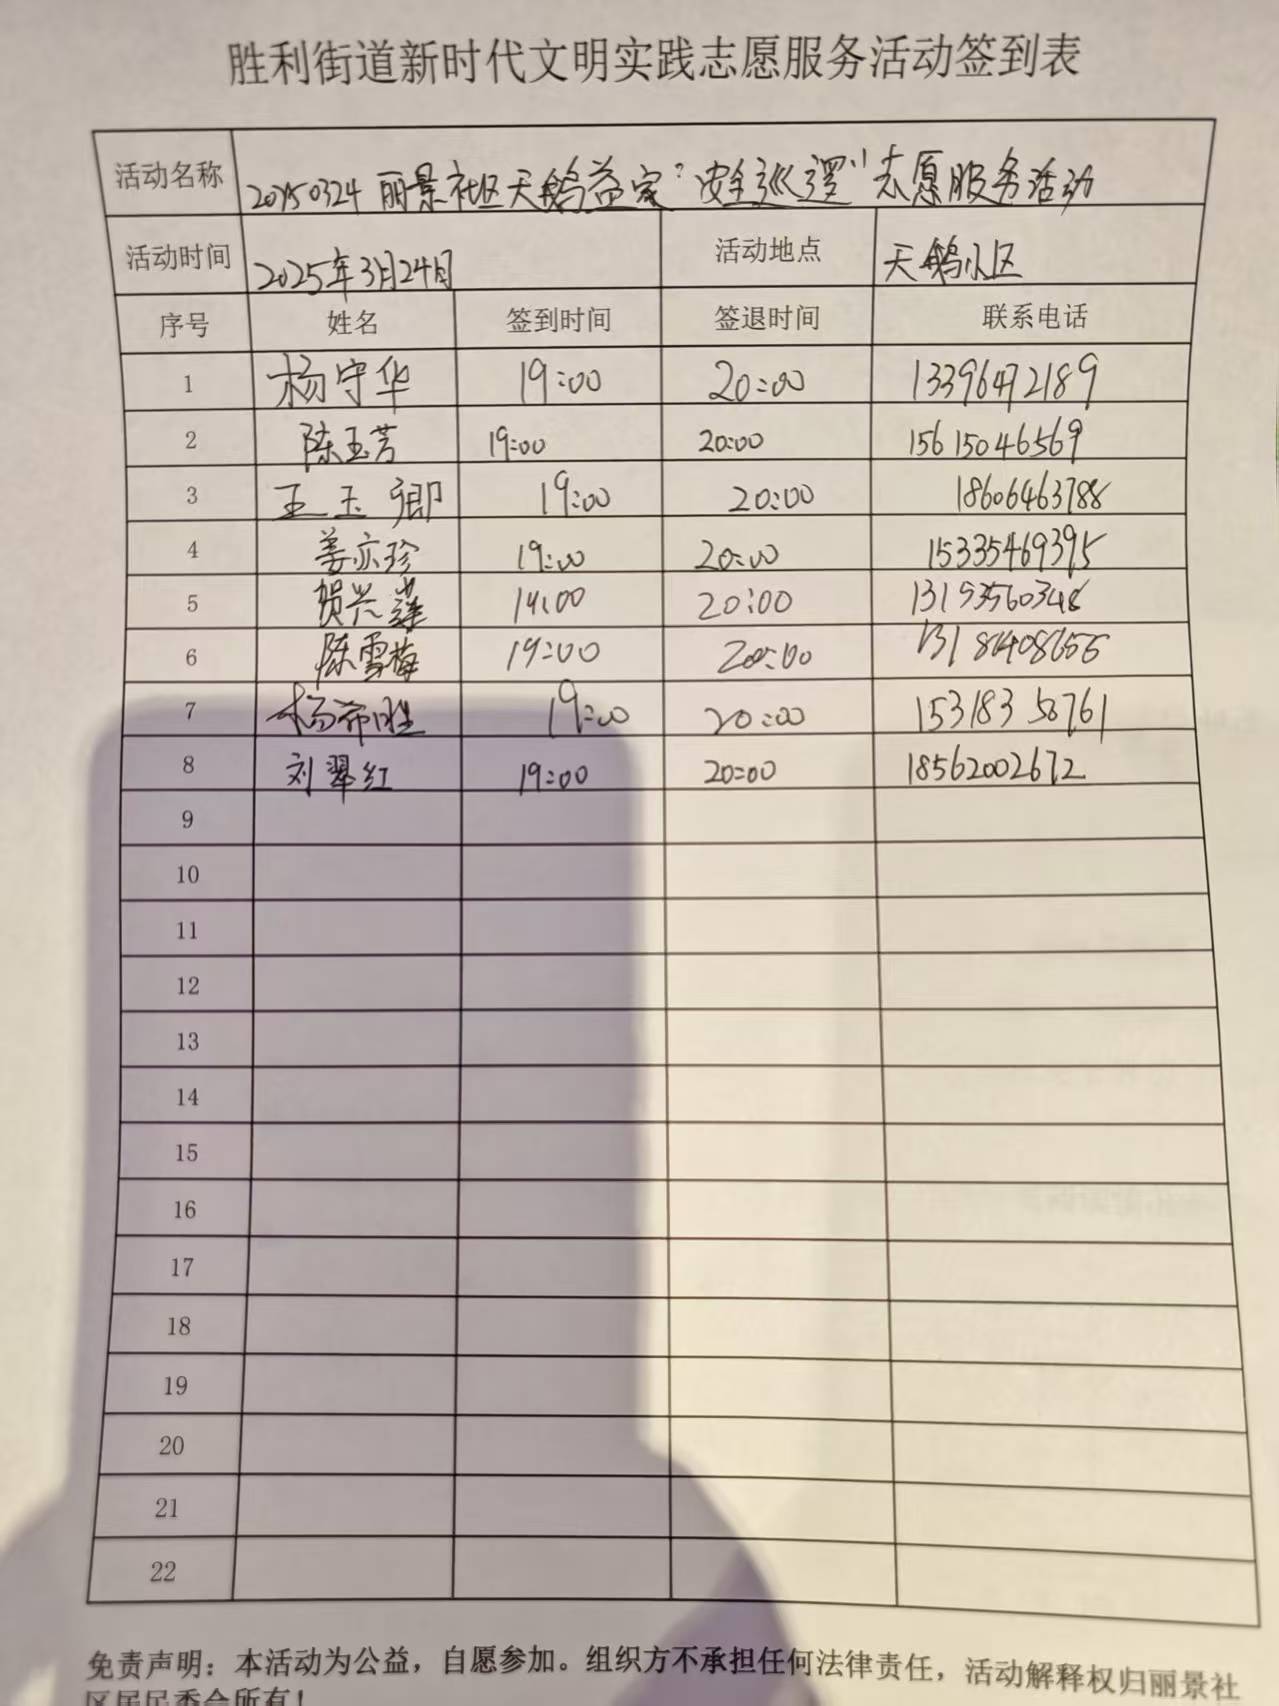 胜利街道新时代文明实践志愿服务活动签到表
活动名称 20250324 丽景社区天鹅益家“安全巡逻”志愿服务活动
活动时间 2025年3月24日 活动地点 天鹅小区
序号 姓名 签到时间 签退时间 联系电话
1 杨守华 19:00 20:00 13396472189
2 陈玉芳 19:00 20:00 15615046569
3 王玉卿 19:00 20:00 18606463788
4 姜亦珍 19:00 20:00 15335469395
5 贺兴莲 19:00 20:00 13193560348
6 陈雪梅 19:00 20:00
7 杨希胜 19:00 20:00 15318358761
8 刘翠红 19:00 20:00 18562002672
9
10
11
12
13
14
15
16
17
18
19
20
21
22
免责声明：本活动为公益，自愿参加。组织方不承担任何法律责任，活动解释权归丽景社
区居民委会所有！